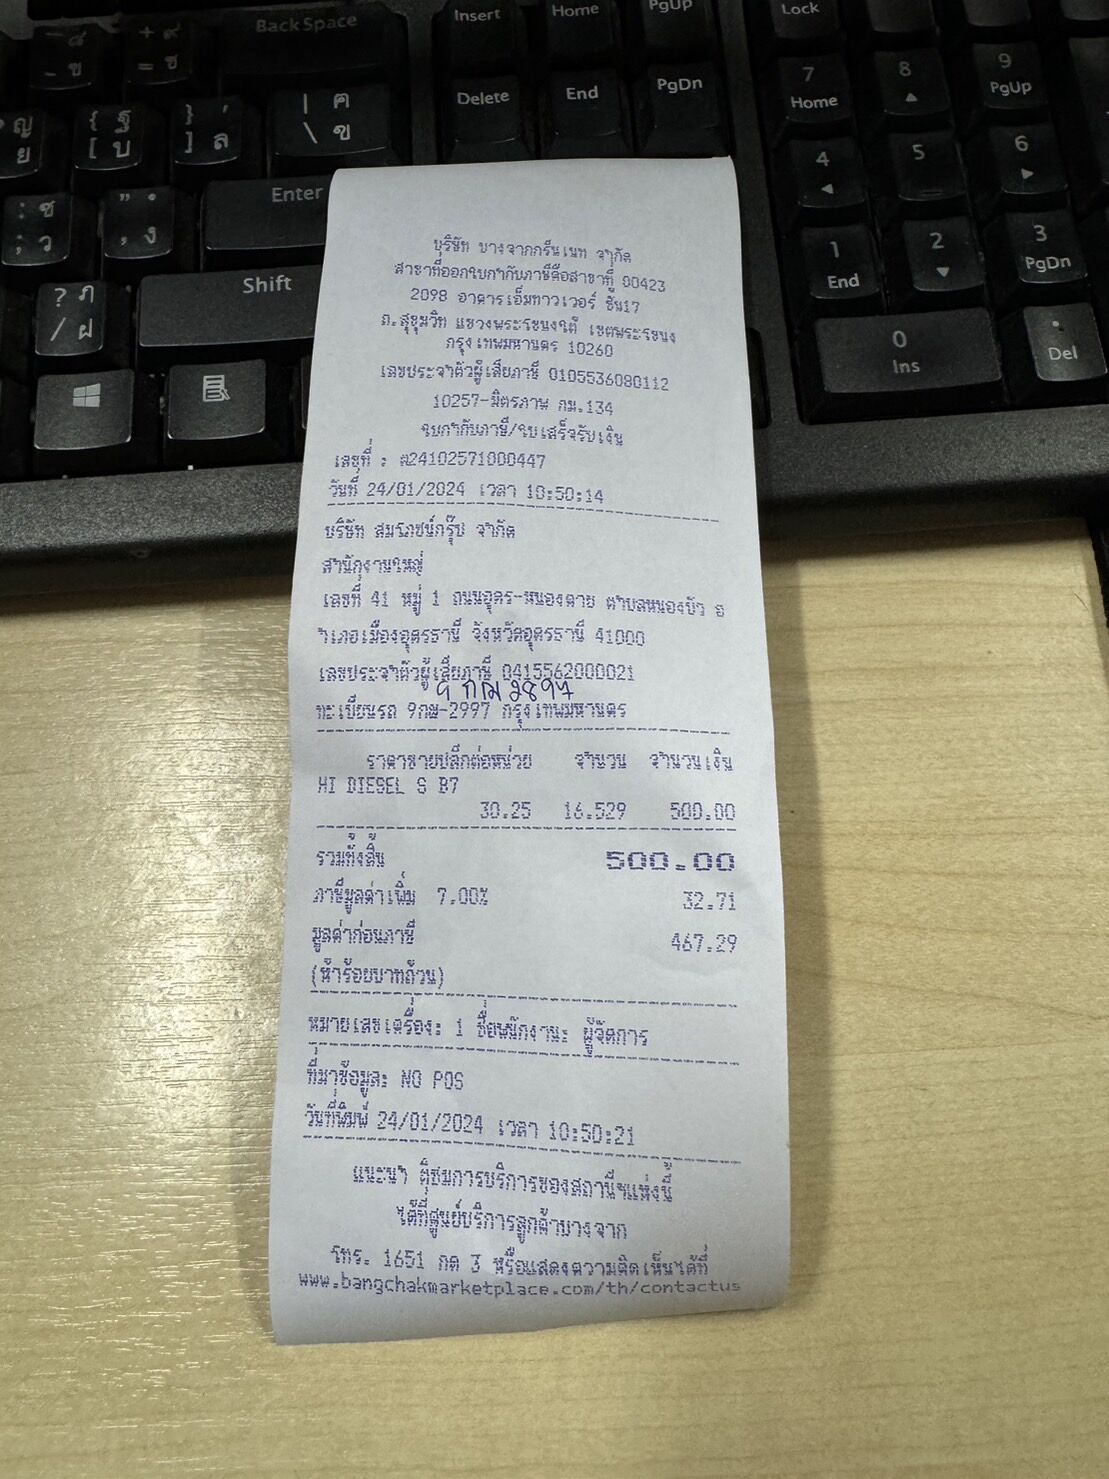 บริษัท บางจากกรีนเนท จำกัด
สาขาที่ออกใบกำกับภาษีคือสาขาที่ 00423
2098 อาคารเอ็มทาวเวอร์ ชั้น17
ถ.สุขุมวิท แขวงพระโขนงใต้ เขตพระโขนง
กรุงเทพมหานคร 10260
เลขประจำตัวผู้เสียภาษี 0105536080112
10257-มิตรภาพ กม.134
ใบกำกับภาษี/ใบเสร็จรับเงิน
เลขที่ : ต24102571000447
วันที่ 24/01/2024 เวลา 10:50:14
บริษัท สมโภชน์กรุ๊ป จำกัด
สำนักงานใหญ่
เลขที่ 41 หมู่ 1 ถนนอุดร-หนองคาย ตำบลหนองบัว อ
ำเภอเมืองอุดรธานี จังหวัดอุดรธานี 41000
เลขประจำตัวผู้เสียภาษี 0415562000021
ทะเบียนรถ 9กฒ-2997 กรุงเทพมหานคร
ราคาขายปลีกต่อหน่วย จำนวน จำนวนเงิน
HI DIESEL S B7
30.25 16.529 500.00
รวมทั้งสิ้น 500.00
ภาษีมูลค่าเพิ่ม 7.00% 32.71
มูลค่าก่อนภาษี 467.29
(ห้าร้อยบาทถ้วน)
หมายเลขเครื่อง: 1 ชื่อพนักงาน: ผู้จัดการ
ที่มาข้อมูล: NO POS
วันที่พิมพ์ 24/01/2024 เวลา 10:50:21
แนะนำ ติชมการบริการของสถานีฯแห่งนี้
ได้ที่ศูนย์บริการลูกค้าบางจาก
โทร. 1651 กด 3 หรือแสดงความคิดเห็นได้ที่
www.bangchakmarketplace.com/th/contactus